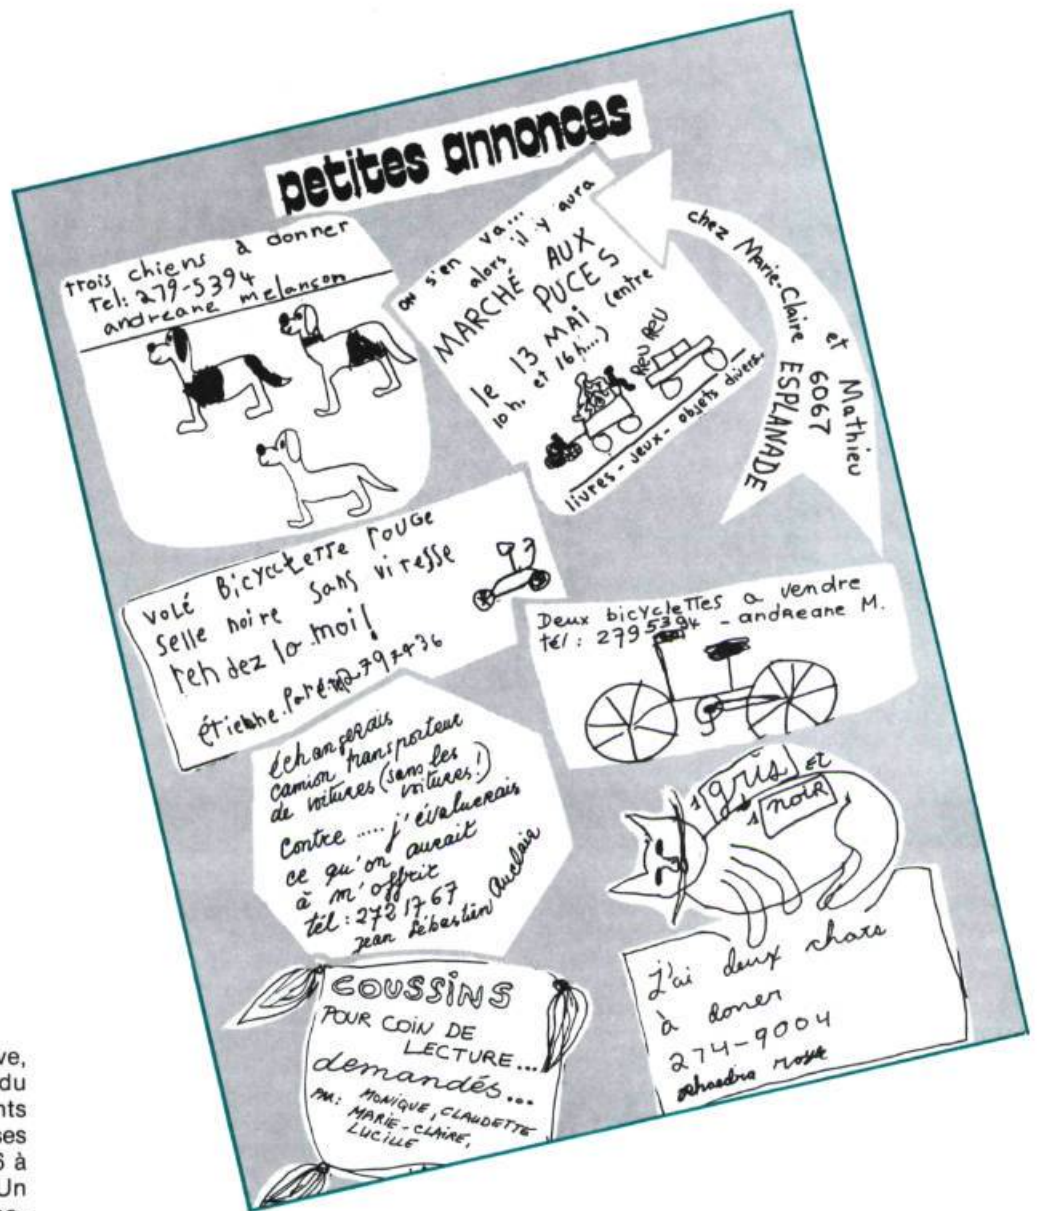 petites annonces
trois chiens à donner
Tel: 279-5394
andreane melançon
on s'en va...
alors il y aura
MARCHÉ AUX
PUCES
le 13 MAI (entre
10 h. et 16h...)
REU REU
livres - jeux - objets divers.
chez Marie-Claire et Mathieu
6067
ESPLANADE
volé Bicyclette rouge
selle noire sans vitesse
rendez la moi!
étienne
Deux bicyclettes a vendre
tél: 2795394 - andreane M.
échangerais
camion transporteur
de voitures (sans les
voitures!)
contre .... j'évaluerais
ce qu'on aurait
à m'offrir
tél: 272 1767
Jean Sébastien Auclair
1 gris et
1 noir
j'ai deux chats
à doner
274-9004
COUSSINS
POUR COIN DE
LECTURE...
demandés...
PAR: MONIQUE, CLAUDETTE
MARIE-CLAIRE,
LUCILLE
ve,
du
nts
ses
6 à
Un